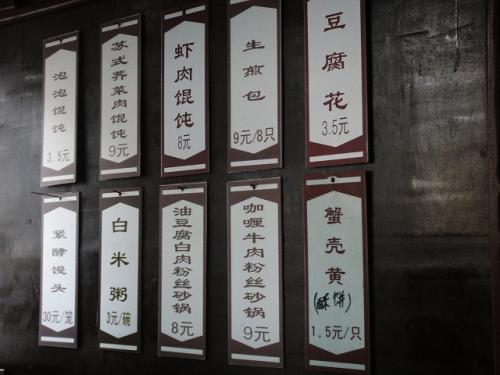 泡泡馄饨
3.5元
苏式荠菜肉馄饨
9元
虾肉馄饨
8元
生煎包
9元/8只
豆腐花
3.5元
紧酵馒头
30元/笼
白米粥
3元/碗
油豆腐白肉粉丝砂锅
8元
咖喱牛肉粉丝砂锅
9元
蟹壳黄
(酥饼)
1.5元/只